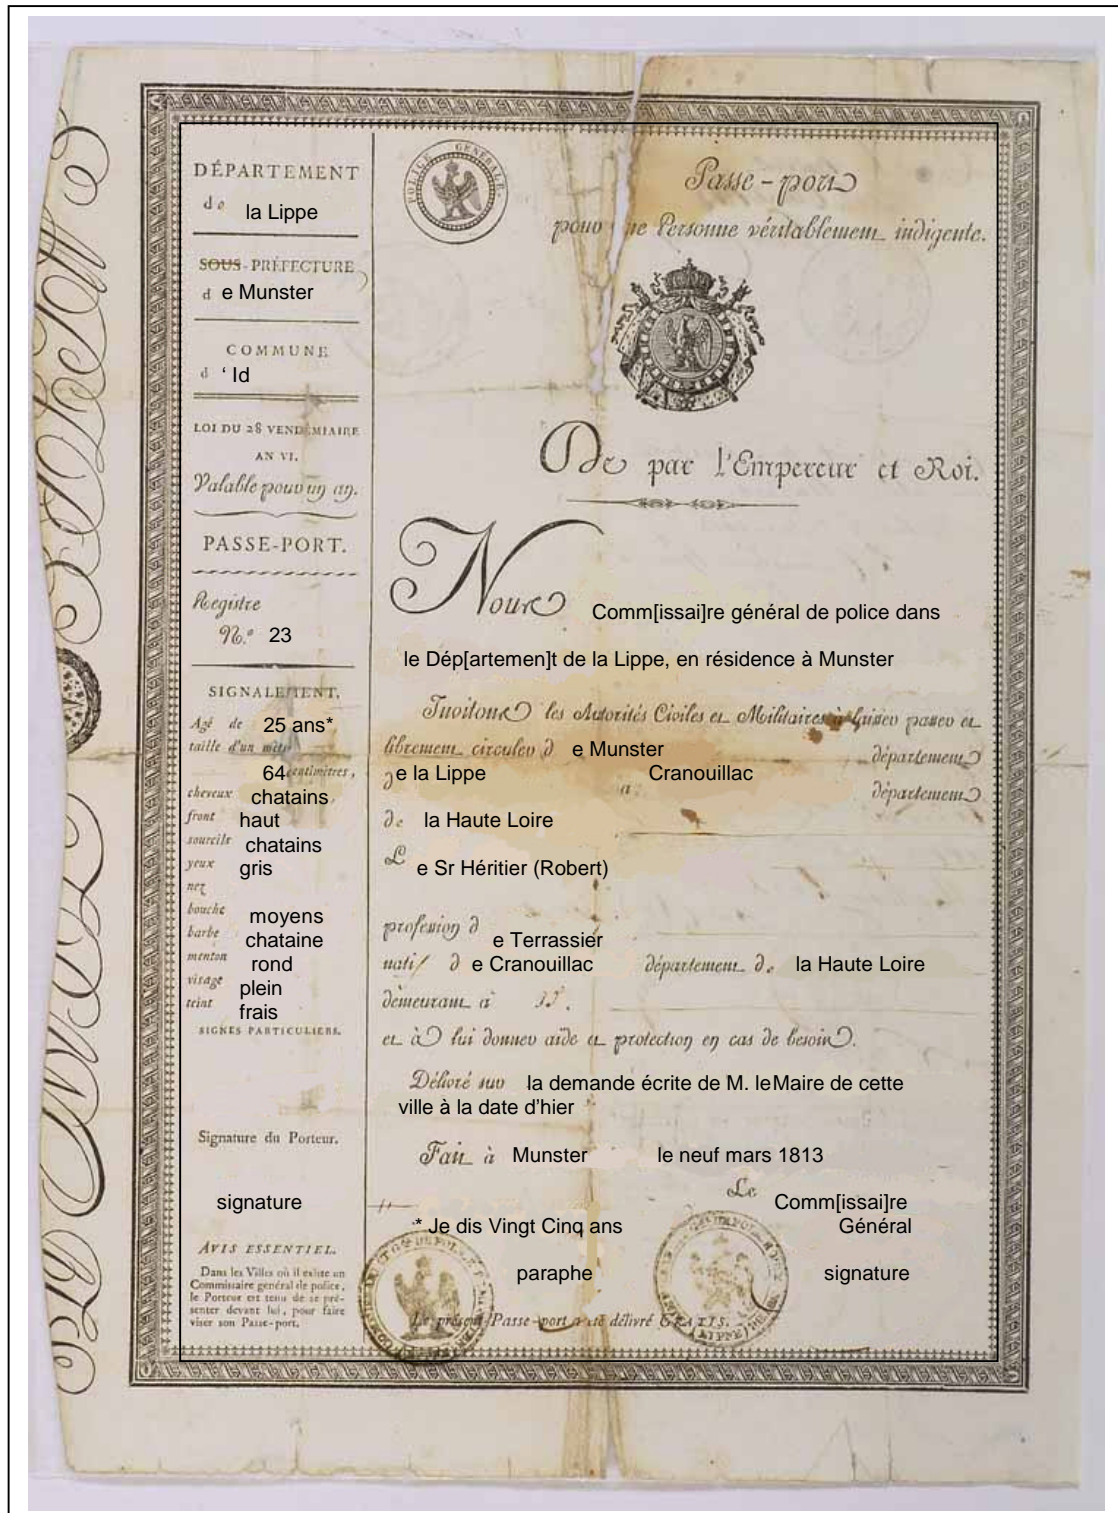 DÉPARTEMENT
de la Lippe
SOUS-PRÉFECTURE
d e Munster
COMMUNE
d ‘ Id
LOI DU 28 VENDÉMIAIRE
AN VI.
Valable pour un an.
PASSE-PORT.
Registre
N.º 23
SIGNALEMENT.
Agé de 25 ans*
taille d'un mètre
64 centimètres,
cheveux chatains
front haut
sourcils chatains
yeux gris
nez
bouche moyens
barbe chataine
menton rond
visage plein
teint frais
SIGNES PARTICULIERS.
Signature du Porteur.
signature
AVIS ESSENTIEL.
Dans les Villes où il existe un
Commissaire général de police,
le Porteur est tenu de se pré-
senter devant lui, pour faire
viser son Passe-port.
POLICE GÉNÉRALE
Passe-port
pour une Personne véritablement indigente.
De par l'Empereur et Roi.
Nous Comm[issai]re général de police dans
le Dép[artemen]t de la Lippe, en résidence à Munster
Invitons les Autorités Civiles et Militaires à laisser passer et
librement circuler d e Munster département
de la Lippe à Cranouillac département
de la Haute Loire
L e Sr Héritier (Robert)
profession d e Terrassier
natif d e Cranouillac département de la Haute Loire
demeurant à
et à lui donner aide et protection en cas de besoin.
Délivré sur la demande écrite de M. leMaire de cette
ville à la date d’hier
Fait à Munster le neuf mars 1813
Le Comm[issai]re
Général
* Je dis Vingt Cinq ans
paraphe signature
Le présent Passe-port a été délivré GRATIS.